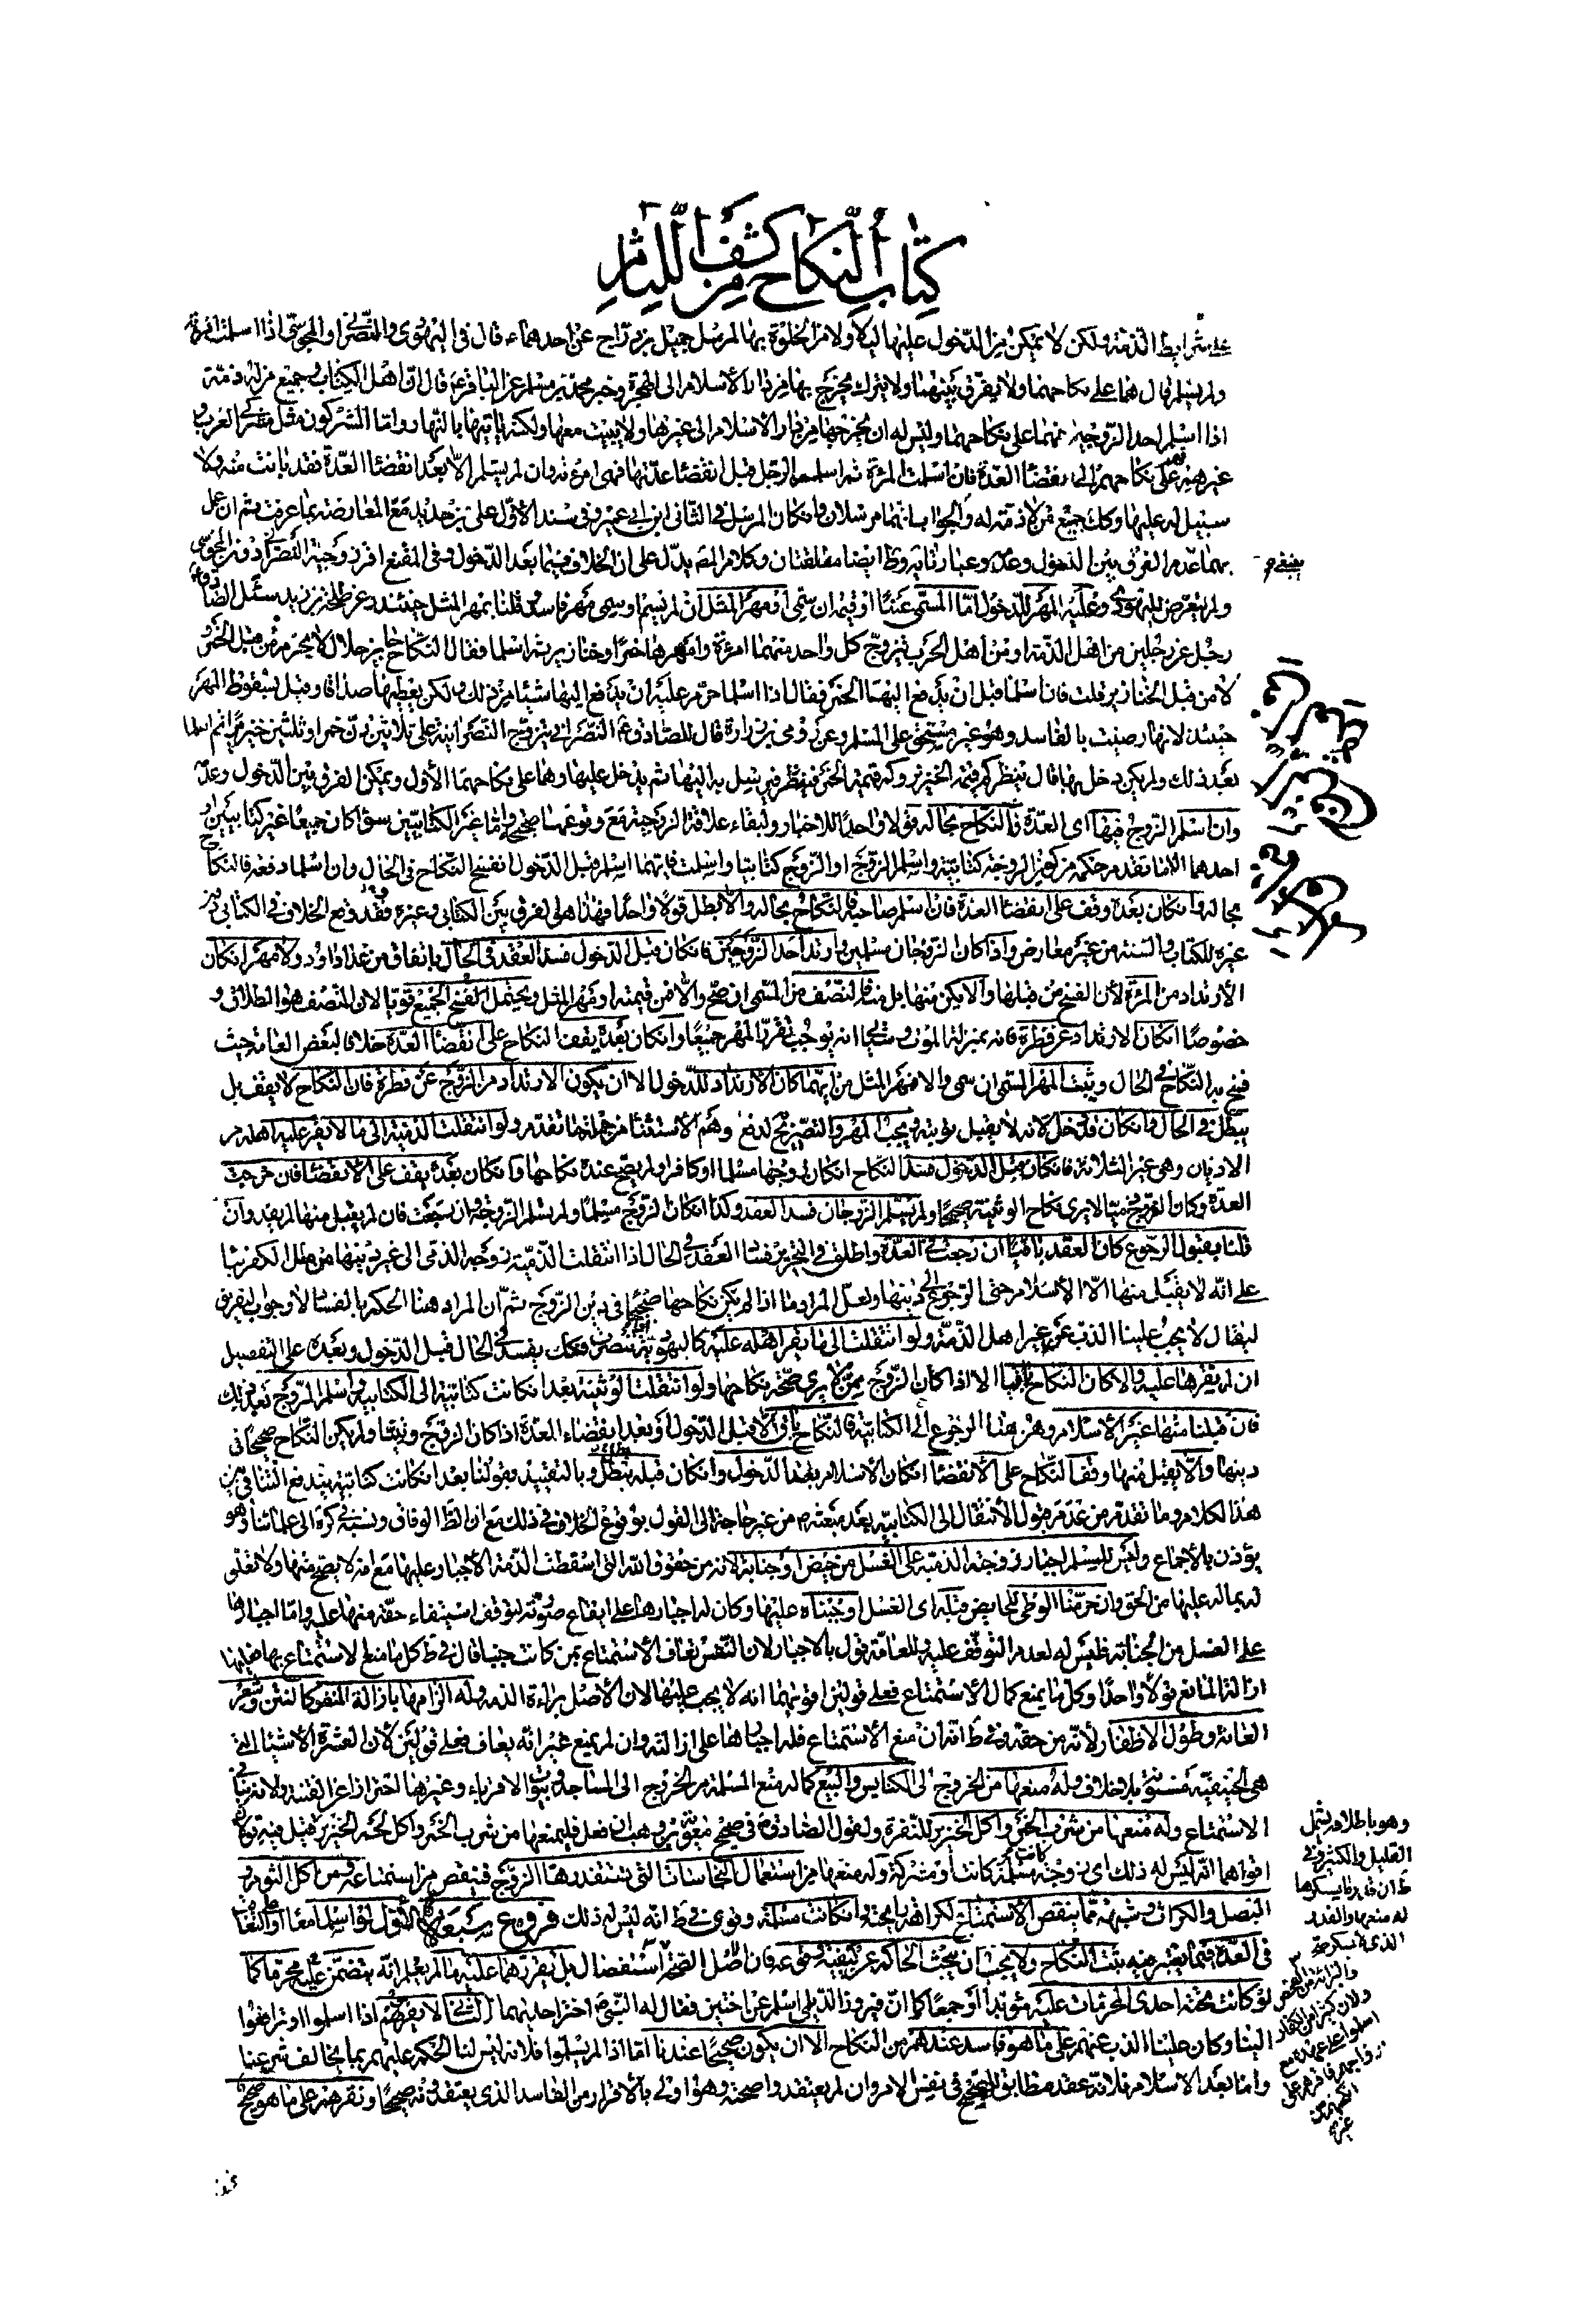 كتاب النكاح من كشف اللثام
على شرايط الذمة ولكن لا يمكن من الدخول عليها ليلا ولا من الخلوة بها لمرسل جميل بن دراج عن احدهما ع قال في اليهودي والنصراني والمجوسي اذا اسلمت امرأته
ولم يسلم قال هما على نكاحهما ولا يفرق بينهما ولا يترك يخرج بها من دار الاسلام الى الهجرة وخبر محمد بن مسلم عن الباقر ع قال ان اهل الكتاب وجميع من له ذمة
اذا اسلم احد الزوجين فهما على نكاحهما وليس له ان يخرجها من دار الاسلام الى غيرها ولا يبيت معها ولكنه ياتيها بالنهار واما المشركون مثل مشركي العرب و
غيرهم فهم على نكاحهم الى انقضاء العدة فان اسلمت المرأة ثم اسلم الرجل قبل انقضاء عدتها فهي امرأته وان لم يسلم الا بعد انقضاء العدة فقد بانت منه ولا
سبيل له عليها وكك جميع من لا ذمة له والجواب انهما مرسلان وان كان المرسل في الثاني ابن ابي عمير وفي سند الاول علي بن حديد مع المعارضة بما عرفت ثم ان عل
بهما عدم الفرق بين الدخول وعدمه وعبارتا يه وط ايضا مطلقتان وكلام المص يدل على ان الخلاف فيما بعد الدخول وفي المقنع افرز وجته النصراني دون المجوسي
ولم يتعرض لليهودي وعليه المهر للدخول اما المسمى عينا او قيمة ان سمى او مهر المثل ان لم يسم او سمى مهر فاسد وقلنا بمهر المثل حينئذ وعن طلحة بن زيد سئل الصادق ع
رجل عن رجلين من اهل الذمة او من اهل الحرب تزوج كل واحد منهما امرأة وامهرها خمرا وخنازير ثم اسلما فقال النكاح جايز حلال لا يحرم من قبل الخمر و
لا من قبل الخنازير قلت فان اسلما قبل ان يدفع اليهما الخمر فقال اذا اسلما حرم عليه ان يدفع اليها شيئا من ذلك ولكن يعطيها صداقا وقيل بسقوط المهر
حينئذ لانها رضيت بالفاسد وهو غير مستحق على المسلم وعن رومي بن زرارة قال للصادق ع النصراني يتزوج النصرانية على ثلاثين دن خمرا وثلثين خنزيرا ثم اسلما
بعد ذلك ولم يكن دخل بها قال ينظر كم قيمة الخنزير وكم قيمة الخمر فيرسل به اليها ثم يدخل عليها وهما على نكاحهما الاول ويمكن الفرق بين الدخول وعدمه
وان اسلم الزوج فيها اى العدة فالنكاح بحاله قولا واحدا للاخبار ولبقاء علاقة الزوجية مع وقوعها صحيحا واما غير الكتابيين سواء كان جميعا غير كتابيين او
احدهما الا ما تقدم حكمه من كون الزوجة كتابية واسلم الزوج او الزوج كتابيا واسلمت فايهما اسلم قبل الدخول انفسخ النكاح في الحال وان اسلما دفعة فالنكاح
بحاله وان كان بعده وقف على انقضاء العدة فان اسلم صاحبه فالنكاح بحاله والا بطل قولا واحدا فهذا هو الفرق بين الكتابي وغيره فقد وقع الخلاف في الكتابي دون
غيره للكتاب والسنة من غير معارض واذا كان الزوجان مسلمين وارتد احد الزوجين فان كان قبل الدخول فسد العقد في الحال باتفاق من عدا داود ولا مهر ان كان
الارتداد من المرأة لان الفسخ من قبلها والا يكن منها بل منه فالنصف من المسمى ان صح والا فمن قيمته او مهر المثل ويحتمل الفسخ الجميع قويا لان المنصف هو الطلاق و
خصوصا ان كان الارتداد عن فطرة فانه بمنزلة الموت وسيجئ انه يوجب تقرير المهر جميعا وان كان بعده يقف النكاح على انقضاء العدة خلافا لبعض العامة حيث
فسخ به النكاح في الحال ويثبت المهر المسمى ان سمى والا فمهر المثل من ايهما كان الارتداد للدخول الا ان يكون الارتداد من الزوج عن فطرة فان النكاح لا يقف بل
يبطل في الحال وان كان قد دخل لانه لا يقبل توبته ويجب المهر والتصريح لدفع وهم الاستثناء من جملة ما تقدم ولو انتقلت الذمية الى ما لا يقر عليه اهله من
الاديان وهي غير الثلاثة فان كان قبل الدخول فسد النكاح ان كان زوجها مسلما او كافرا ولم يصح عنده نكاحها وان كان بعده يقف على الانقضاء فان خرجت
العدة وكان الزوج ممن لا يرى نكاح الوثنية صحيحا ولم يسلم الزوجان فسد العقد وكذا ان كان الزوج مسلما ولم يسلم الزوجة وان رجعت فان لم يقبل منها لم يفد وان
قلنا بقبول الرجوع كان العقد باقيا ان رجعت في العدة واطلق في التحرير فساد العقد في الحال اذا انتقلت الذمية زوجة الذمي الى غير دينها من ملل الكفر بناء
على انه لا يقبل منها الا الاسلام حتى الرجوع الى دينها ولعل المراد ما اذا لم يكن نكاحها صحيحا في دين الزوج ثم ان المراد هنا الحكم بالفساد لا وجوب التفريق
ليقال لا يجب علينا الذب عن غير اهل الذمة ولو انتقلت الى ما يقر اهله عليه كاليهودية تنصرت فكك يفسد في الحال قبل الدخول وبعده على التفصيل
ان لم يقرها عليه والا كان النكاح باقيا الا اذا كان الزوج ممن لا يرى صحة نكاحها ولو انتقلت الوثنية بعد ان كانت كتابية الى الكتابية واسلم الزوج بعد ذلك
فان قبلنا منها غير الاسلام وهو هنا الرجوع الى الكتابية فالنكاح باق الا قبل الدخول او بعد انقضاء العدة اذا كان الزوج وثنيا ولم يكن النكاح صحيحا في
دينها والا يقبل منها وقف النكاح على الانقضاء ان كان الاسلام بعد الدخول وان كان قبله بطل وبالتقييد بقولنا بعد ان كانت كتابية يندفع التنافي بين
هذا الكلام وما تقدم من عدم قبول الانتقال الى الكتابية بعد مبعثه ص من غير حاجة الى القول بوقوع الخلاف في ذلك مع ان الظ الوفاق ونسبة في كره الى علمائنا وهو
يؤذن بالاجماع وليس للمسلم اجبار زوجته الذمية على الغسل من حيض او جنابة لانه من حقوق الله التي اسقطت الذمة الاجبار عليها مع انه لا يصح منها ولا تعلق
له بماله عليها من الحق وان حرمنا الوطى للحايض قبله اى الغسل اوجبناه عليها وكان له اجبارها على ايقاع صورته لتوقف استيفاء حقه منها عليه واما اجبارها
على الغسل من الجنابة فليس له لعدم التوقف عليه وللعامة قول بالاجبار لان النفس تعاف الاستمتاع بمن كانت جنبا قال في ط كل ما منع الاستمتاع بها فعليها
ازالة المانع قولا واحدا وكل ما يمنع كمال الاستمتاع فعلى قولين اقويهما انه لا يجب عليها لان الاصل براءة الذمة وله الزامها بازالة المنفر كالنتن وشعر
العانة وطول الاظفار لانه من حقه وفي ط انه ان منع الاستمتاع فله اجبارها على ازالته وان لم يمنع غير انه يعاف فعلى قولين لان العشرة الاشياء التي
هي الحنيفية مسنونة بلا خلاف وله منعها من الخروج الى الكنايس والبيع كما له منع المسلمة من الخروج الى المساجد وبيوت الاقرباء وغيرها احترازا عن الفتنة ولانه ينافي
الاستمتاع وله منعها من شرب الخمر واكل الخنزير للنفرة ولقول الصادق ع في صحيح معوية بن وهب ان فعل فليمنعها من شرب الخمر واكل لحم الخنزير قيل فيه قولان
اقواهما انه ليس له ذلك اى زوجة مسلمة كانت او مشركة وله منعها من استعمال النجاسات التي تستقذرها الزوج فينقص من استمتاعه ومن اكل الثوم و
البصل والكراث وشبهه مما ينقص الاستمتاع لكراهة رايحته وان كانت مسلمة وقوى في ط انه ليس له ذلك فروع سبعة الاول لو اسلما معا او على التعاقب
في العدة فيما يعتبر فيه ثبت النكاح ولا يجب ان يبحث الحاكم عن كيفية وقوعه فان اصل الصحة استفصال بل يقرهما عليه ما لم يعلم انه يتضمن على محرم كما
لو كانت تحته احدى المحرمات عليه مؤبدا او جمعا كما ان فيروز الديلمي اسلم عن اختين فقال له النبي ص اختر احديهما لا يقرهم اذا اسلموا او ترافعوا
الينا وكان علينا الذب عنهم على ما هو فاسد عندهم من النكاح الا ان يكون صحيحا عندنا اما اذا لم يسلموا فلانه ليس لنا الحكم عليهم بما يخالف شرعنا
واما بعد الاسلام فلانه عقد مطابق للصحيح في نفس الامر وان لم يعتقدوا صحته وهو اولى بالاقرار من الفاسد الذي يعتقدونه صحيحا ونقرهم على ما هو صحيح
وهو باطلاقه يشمل
القليل والكثير وفي
ط ان قدر ما يسكرها
له منعها والقدر
الذي لا يسكر